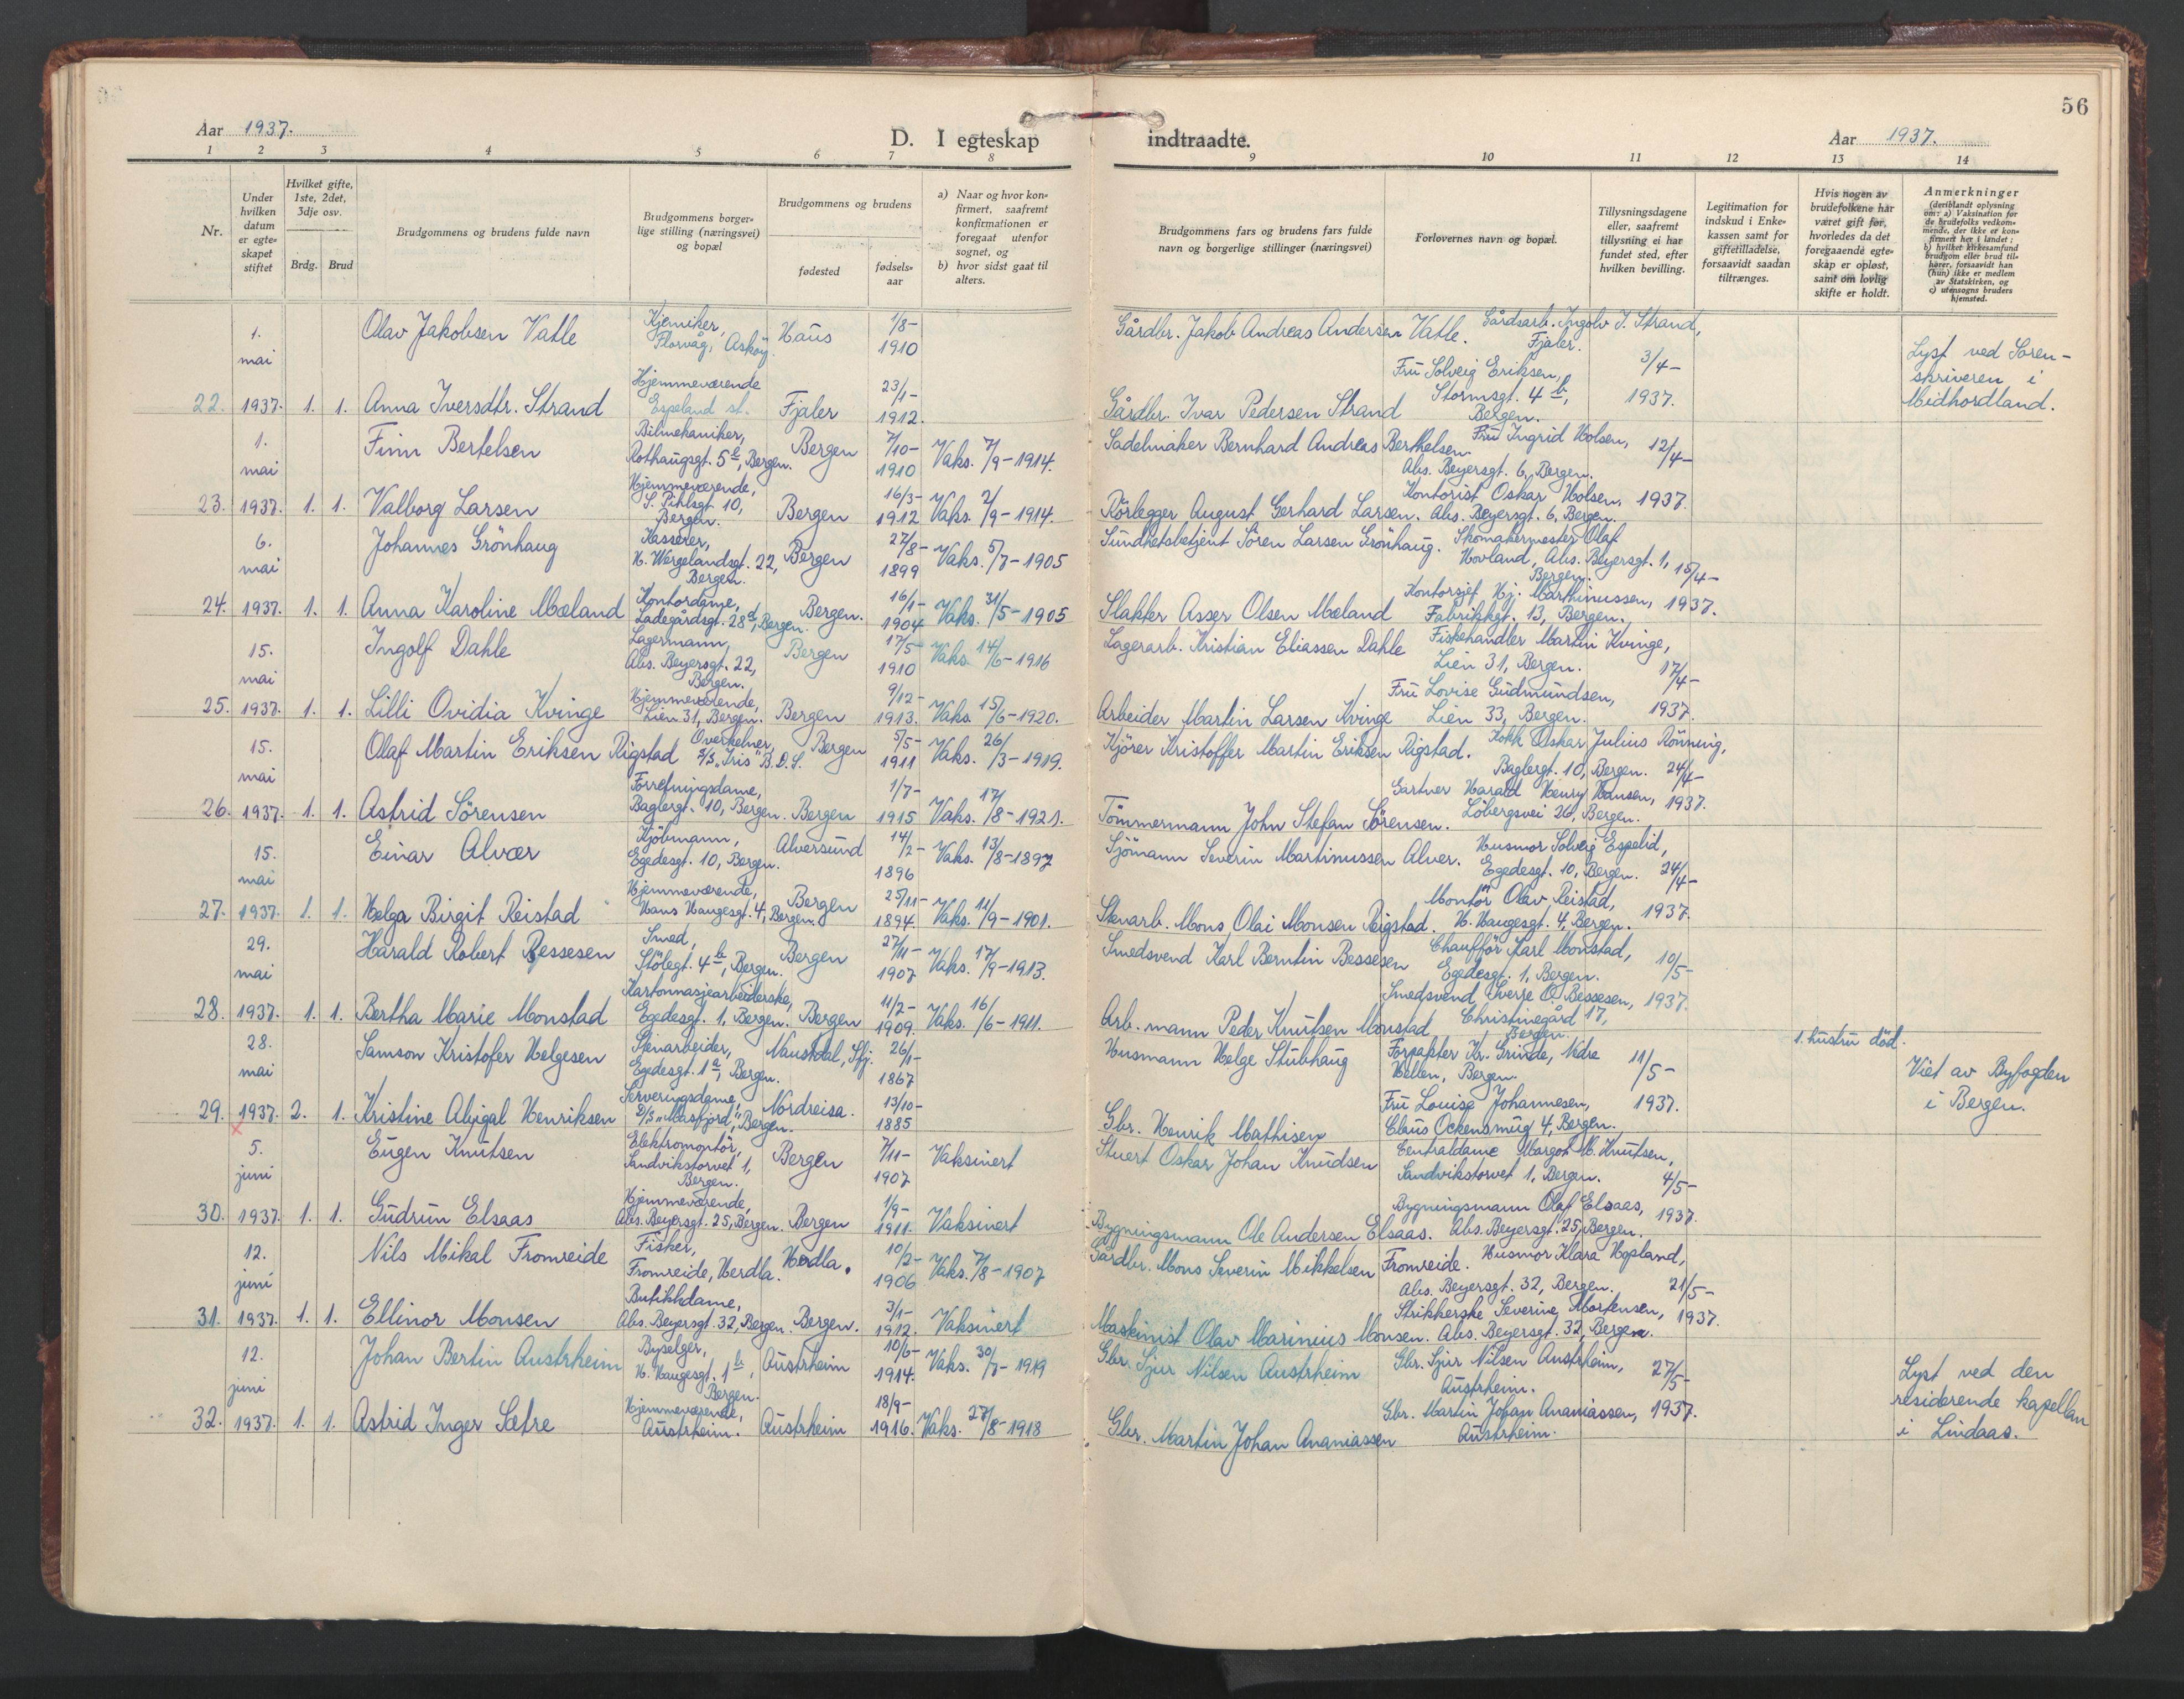 56
Aar 1937.
D. I egteskap indtraadte.
Aar 1937.
1 2 3 4 5 6 7 8 9 10 11 12 13 14
Nr.
Under hvilken datum er egteskapet stiftet
Hvilket gifte, 1ste, 2det, 3dje osv.
Brdg. Brud
Brudgommens og brudens fulde navn
Brudgommens borgerlige stilling (næringsvei) og bopæl
Brudgommens og brudens
fødested
fødselsaar
a) Naar og hvor konfirmert, saafremt konfirmationen er foregaat utenfor sognet, og
b) hvor sidst gaat til alters.
Brudgommens fars og brudens fars fulde navn og borgerlige stillinger (næringsvei)
Forlovernes navn og bopæl.
Tillysningsdagene eller, saafremt tillysning ei har fundet sted, efter hvilken bevilling.
Legitimation for indskud i Enkekassen samt for giftetilladelse, forsaavidt saadan tiltrænges.
Hvis nogen av brudefolkene har været gift før, hvorledes da det foregaaende egteskap er opløst, samt om lovlig skifte er holdt.
Anmerkninger
(deriblandt oplysning om: a) Vaksination for de brudefolks vedkommende, der ikke er konfirmert her i landet; b) hvilket kirkesamfund brudgom eller brud tilhører, forsaavidt han (hun) ikke er medlem av Statskirken, og c) utensogns bruders hjemsted.
22. 1. mai 1937. 1. 1.
Olav Jakobsen Vatle
Kjemiker, Florvåg, Askøy.
Haus
1/8- 1910
Gårdbr. Jakob Andreas Andersen Vatle.
Gårdsarb. Ingolv I. Strand, Fjaler.
Anna Iversdtr. Strand
Hjemmeværende Espeland st.
Fjaler
23/1- 1912.
Gårdbr. Ivar Pedersen Strand
Fru Solveig Eriksen, Stormsgt. 4 b, Bergen.
3/4- 1937.
Lyst ved Sorenskriveren i Midhordland.
23. 1. mai 1937. 1. 1.
Finn Bertelsen
Bilmekaniker, Rothaugsgt. 5 b, Bergen.
Bergen
7/10- 1910
Vaks. 7/9-1914.
Sadelmaker Bernhard Andreas Berthelsen
Fru Ingrid Holsen, Abs. Beyersgt. 6, Bergen.
Valborg Larsen
Hjemmeværende, S. Pihlsgt. 10, Bergen.
Bergen
16/3- 1912
Vaks. 2/9-1914.
Rörlegger August Gerhard Larsen.
Kontorist Oskar Holsen, Abs. Beyersgt. 6, Bergen.
12/4- 1937.
24. 6. mai 1937. 1. 1.
Johannes Grönhaug
Kasserer, H. Wergelandsgt. 22, Bergen.
Bergen
27/8- 1899
Vaks. 5/7-1905
Sundhetsbetjent Sören Larsen Grönhaug.
Skomakermester Olaf Hovland, Abs. Beyersgt. 1, Bergen.
Anna Karoline Mæland
Kontordame, Ladegårdsgt. 28 d, Bergen.
Bergen.
16/1- 1904
Vaks. 31/5-1905
Slakter Asser Olsen Mæland
Kontorsjef Hj. Marthinussen, Fabrikkgt. 13, Bergen.
15/4- 1937.
25. 15. mai 1937. 1. 1.
Ingolf Dahle
Lagermann, Abs. Beyersgt. 22, Bergen.
Bergen
17/5- 1910
Vaks. 14/6-1916
Lagerarb. Kristian Eliassen Dahle
Fiskehandler Martin Kvinge, Lien 31, Bergen.
Lilli Ovidia Kvinge
Hjemmeværende, Lien 31, Bergen.
Bergen
9/12- 1913.
Vaks. 15/6-1920.
Arbeider Martin Larsen Kvinge
Fru Lovise Gudmundsen, Lien 33, Bergen.
17/4- 1937.
26. 15. mai 1937. 1. 1.
Olaf Martin Eriksen Rigstad
Overkelner, D/S "Iris" B.D.S.
Bergen
5/5- 1911
Vaks. 26/3-1919.
Kjörer Kristoffer Martin Eriksen Rigstad.
Kokk Oskar Julius Rönning, Baglergt. 10, Bergen.
Astrid Sörensen
Forretningsdame, Baglergt. 10, Bergen.
Bergen
1/7- 1915
Vaks. 17/8-1921.
Tömmermann John Stefan Sörensen.
Gartner Harald Henry Hansen, Löbergsvei 26, Bergen.
24/4- 1937.
27. 15. mai 1937. 1. 1.
Einar Alvær
Kjöbmann, Egedesgt. 10, Bergen.
Alversund
14/2- 1896
Vaks. 13/8-1897
Sjömann Severin Martinussen Alver.
Husmor Solveig Espelid, Egedesgt. 10, Bergen.
Helga Birgit Reistad
Hjemmeværende, Hans Haugesgt. 4, Bergen.
Bergen
25/11- 1894.
Vaks. 11/9-1901.
Stenarb. Mons Olai Monsen Rigstad.
Montör Olav Reistad, H. Haugesgt. 4, Bergen.
24/4- 1937.
28. 29. mai 1937. 1. 1.
Harald Robert Bessesen
Smed, Stölegt. 4 b, Bergen.
Bergen
27/11- 1907
Vaks. 17/9-1913.
Smedsvend Karl Berntin Bessesen
Chaufför Karl Monstad, Egedesgt. 1, Bergen.
Bertha Marie Monstad
Kartonnasjearbeiderske, Egedesgt. 1, Bergen.
Bergen
11/2- 1909.
Vaks. 16/6-1911.
Arb. mann Peder Knutsen Monstad
Smedsvend Sverre O. Bessesen, Christinegård 17, Bergen.
10/5- 1937.
29. 28. mai 1937 2. 1.
Samson Kristofer Helgesen
Stenarbeider, Egedesgt. 1 b, Bergen.
Naustdal, Sfj.
26/1- 1867
Husmann Helge Stubhaug
Forpakter Kr. Grinde, Nedre Hellen, Bergen.
1. hustru död.
Kristine Abigal Henriksen
Serveringsdame, D/S "Masfjord", Bergen.
Nordreisa.
13/10- 1885
Gbr. Henrik Mathisen
Fru Louise Johannesen, Claus Ockensmug 4, Bergen.
11/5- 1937.
Viet av Byfogden i Bergen.
x
30. 5. juni 1937 1. 1.
Eugen Knutsen
Elektromontör, Sandvikstorvet 1, Bergen.
Bergen
7/11- 1907
Vaksinert
Stuert Oskar Johan Knudsen
Centraldame Margot M. Knutsen, Sandvikstorvet 1, Bergen.
Gudrun Elsaas
Hjemmeværende, Abs. Beyersgt. 25, Bergen.
Bergen
1/9- 1911.
Vaksinert
Bygningsmann Ole Andersen Elsaas.
Bygningsmann Olaf Elsaas, Abs. Beyersgt. 25, Bergen.
4/5- 1937.
31. 12. juni 1937. 1. 1.
Nils Mikal Fromreide
Fisker, Fromreide, Herdla.
Herdla.
10/2- 1906
Vaks. 7/8-1907
Gårdbr. Mons Severin Mikkelsen Fromreide.
Husmor Klara Hopland, Abs. Beyersgt. 32, Bergen.
Ellinor Monsen
Butikkdame, Abs. Beyersgt. 32, Bergen.
Bergen.
3/1- 1912.
Vaksinert
Maskinist Olav Marinius Monsen.
Strikkerske Severine Mortensen, Abs. Beyersgt. 32, Bergen.
21/5- 1937.
32. 12. juni 1937. 1. 1.
Johan Bertin Austrheim
Byselger, H. Haugesgt. 1 b, Bergen.
Austrheim
10/6- 1914.
Vaks. 30/7-1919
Gbr. Sjur Nilsen Austrheim
Gbr. Sjur Nilsen Austrheim, Austrheim.
Astrid Inger Sætre
Hjemmeværende, Austrheim.
Austrheim
18/9- 1916.
Vaks. 27/8-1918
Gbr. Martin Johan Ananiassen
Gbr. Martin Johan Ananiassen, Austrheim.
27/5- 1937.
Lyst ved den residerende kapellan i Lindaas.